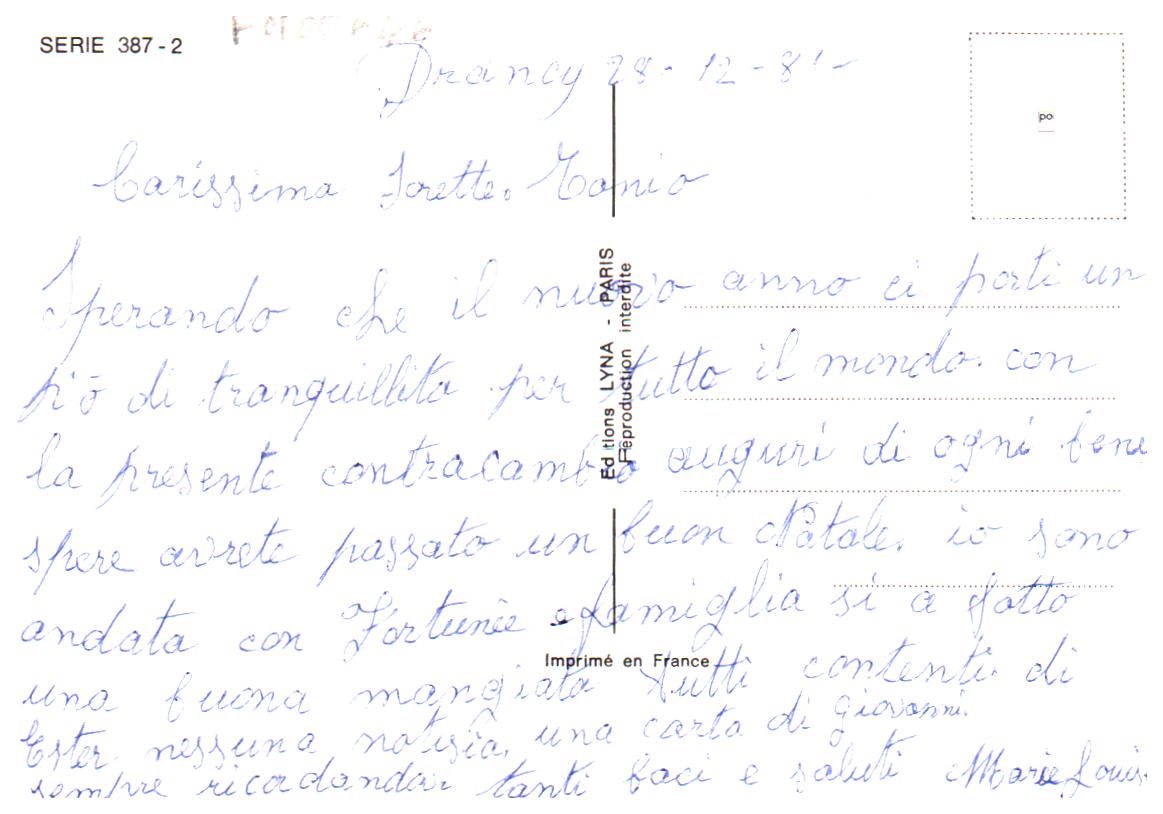 SERIE 387-2
Drancy 28-12-81-
Carissima Sorette. Tonio
Sperando che il nuovo anno ci porti un
pió di tranquillita per tutto il mondo. con
la presente contracambio auguri di ogni bene
spere avrete passato un buon Natale. io sono
andata con Fortunée e famiglia si a fatto
una buona mangiata tutti contenti. di
Ester nessuna notisia, una carta di Giovanni.
sempre ricordandovi tanti baci e saluti Marie Louis
Editions LYNA - PARIS
Reproduction interdite
Imprimé en France
po